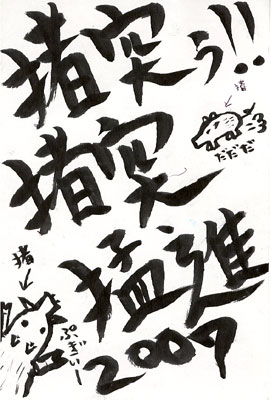 猪突ぅ!!
猪
だだだ
猪突
猛進
猪
ぷぎぃー
2007